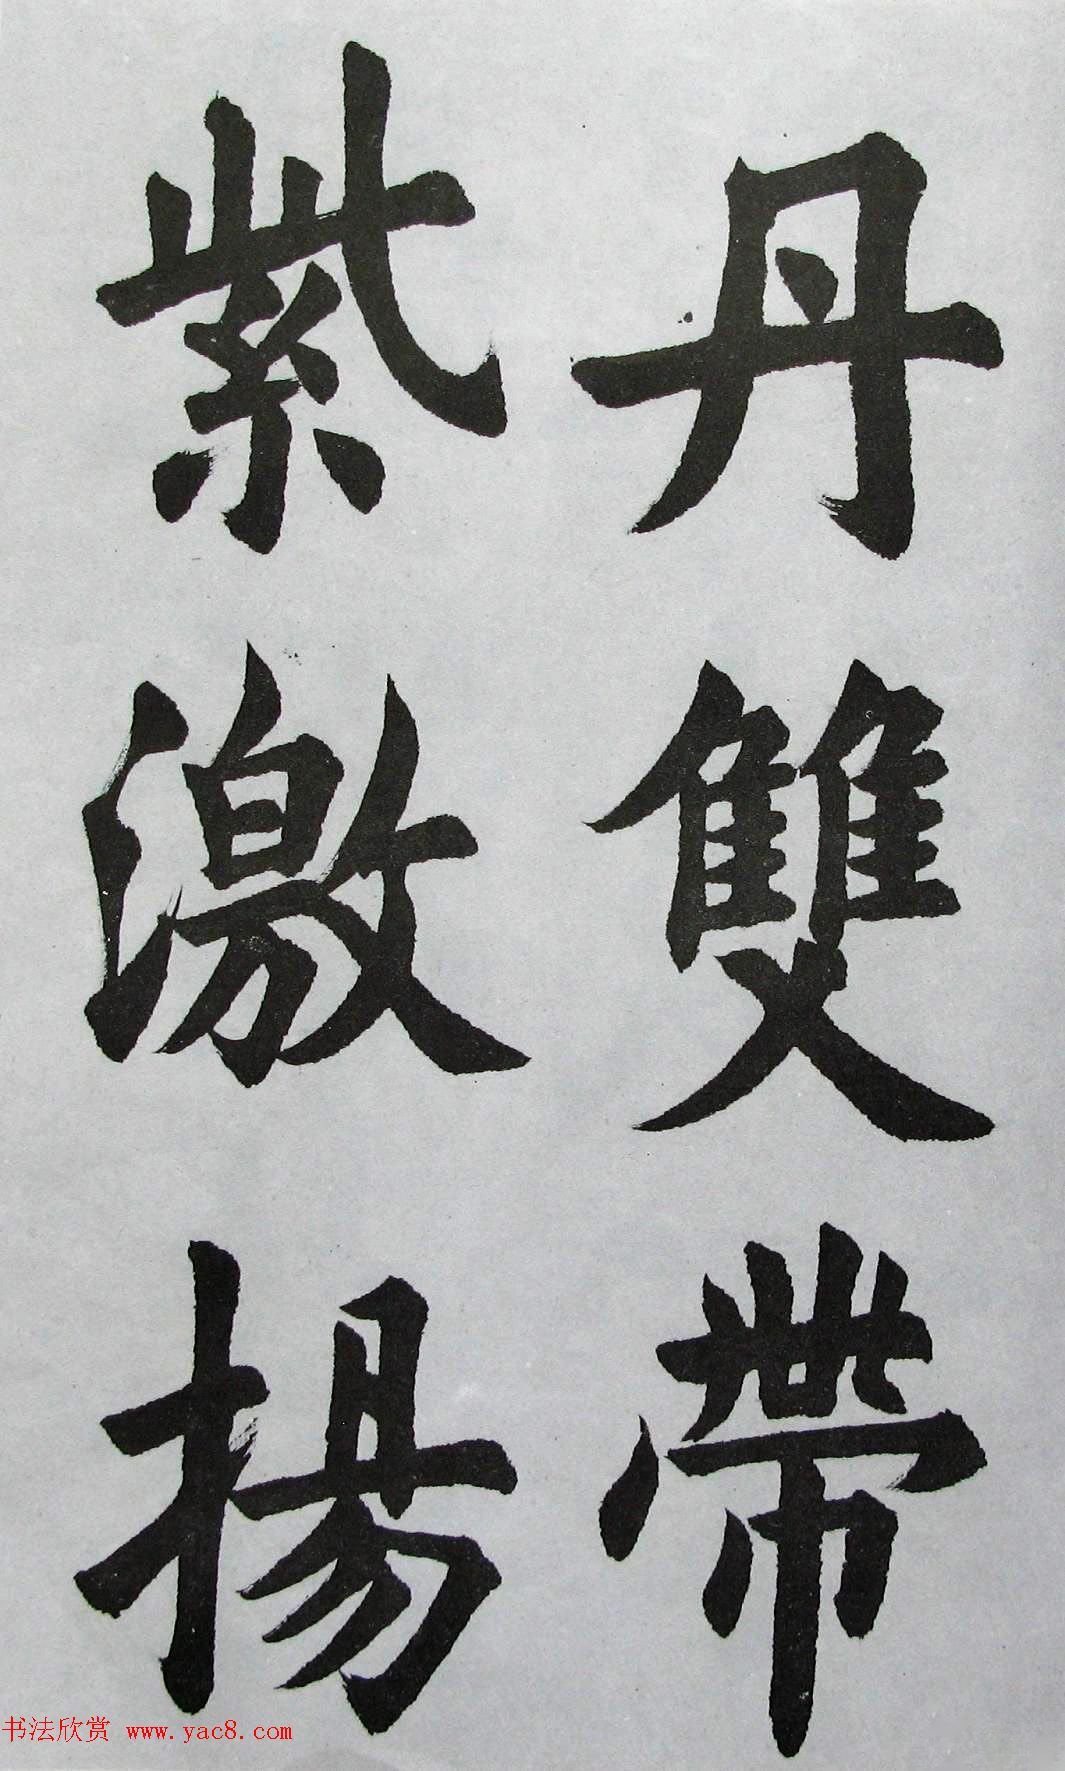 丹雙帶
紫激揚
书法欣赏 www.yac8.com